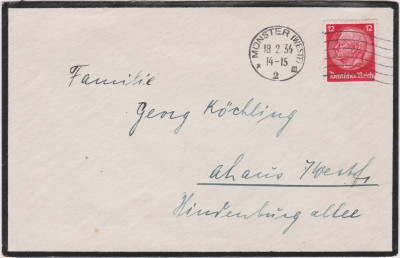 MÜNSTER (WESTF)
18.2.36
14-15
* 2 m
12 12
Deutsches Reich
Familie
Georg Köchling
Ahaus i/Westf.
Hindenburgallee